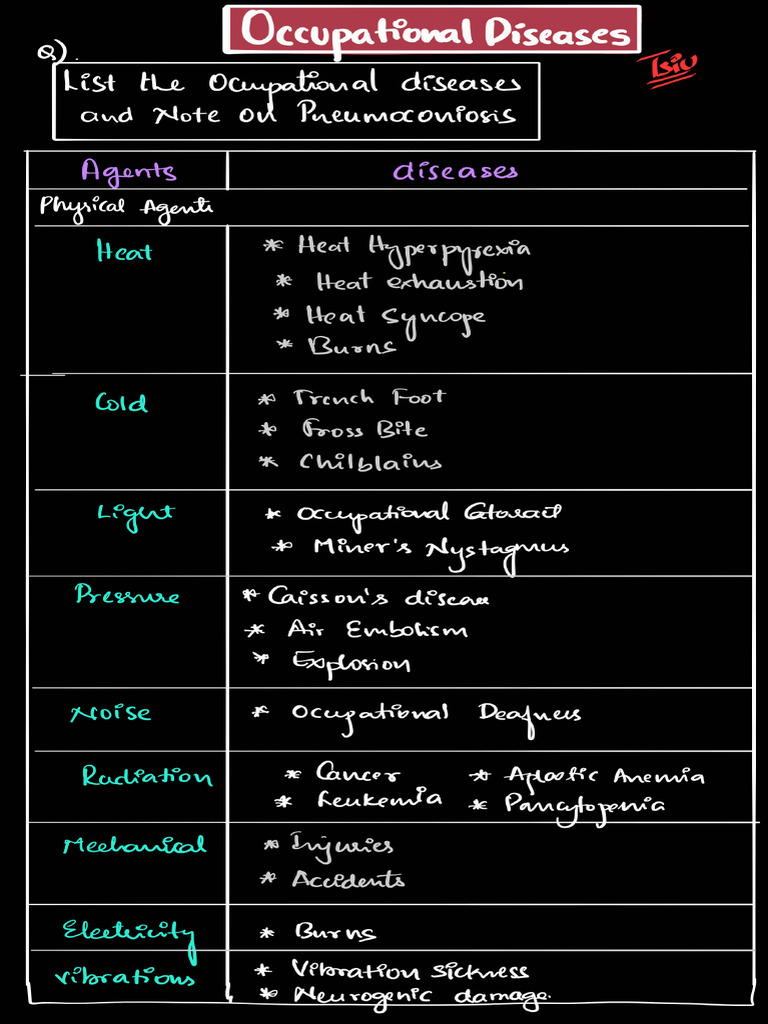 Occupational Diseases
Q)
List the Occupational diseases
and Note on Pneumoconiosis
Agents diseases
Physical Agents
Heat * Heat Hyperpyrexia
* Heat exhaustion
* Heat Syncope
* Burns
Cold * Trench Foot
* Fross Bite
* Chilblains
Light * Occupational
* Miner's Nystagmus
Pressure * Caisson's disease
* Air Embolism
* Explosion
Noise * Occupational Deafness
Radiation * Cancer * Aplastic Anemia
* Leukemia * Pancytopenia
Mechanical * Injuries
* Accidents
Electricity * Burns
Vibrations * Vibration Sickness
* Neurogenic damage.